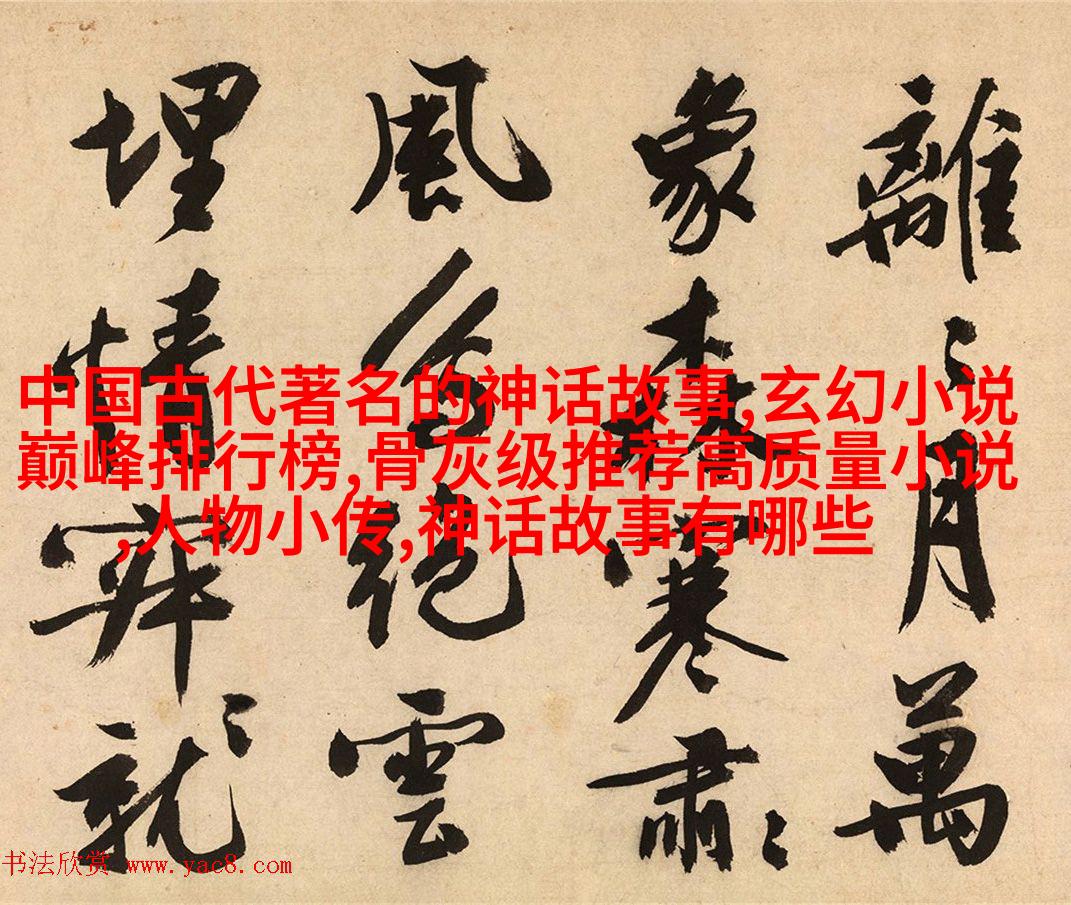 離〻月萬
象森寒肅〻
風絕雲
埋情就〻
中国古代著名的神话故事,玄幻小说
巅峰排行榜,骨灰级推荐高质量小说
,人物小传,神话故事有哪些
书法欣赏 www.yac8.com